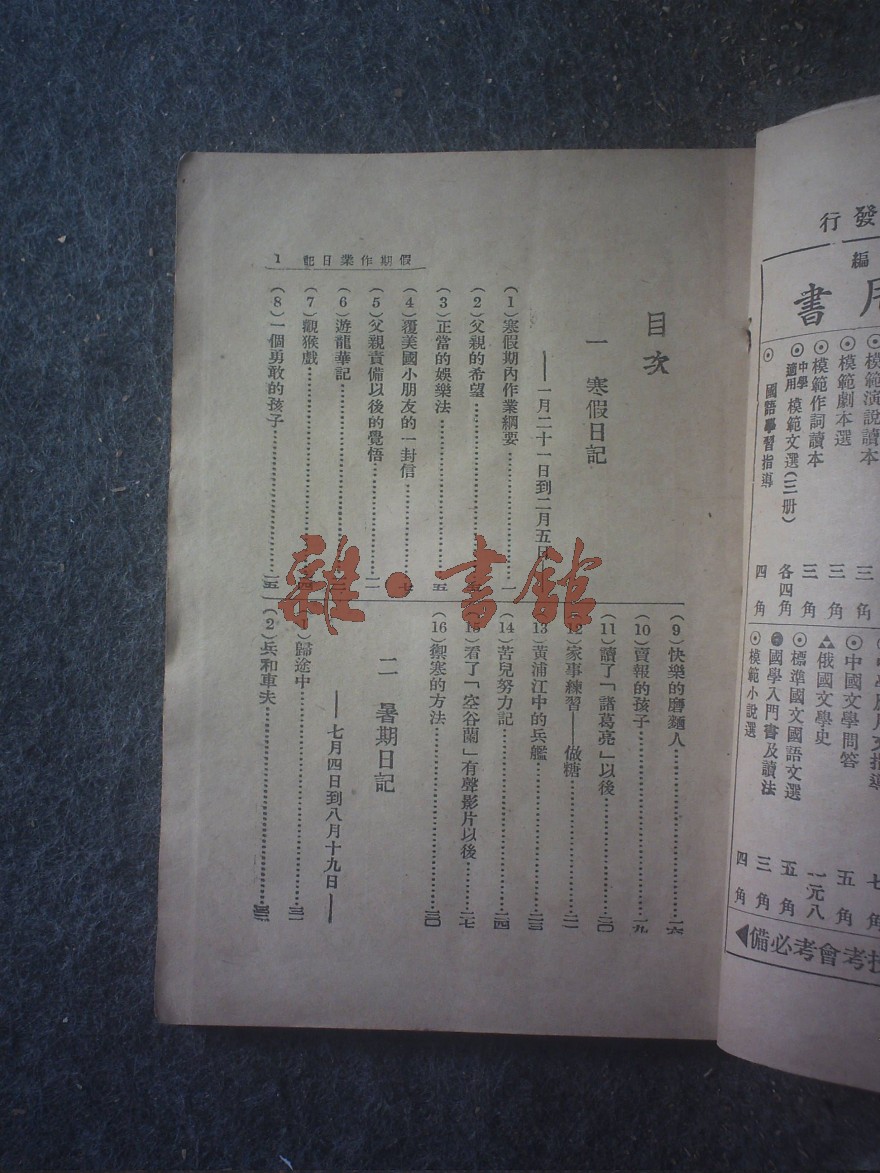 假期作業日記 1
目次
一 寒假日記
——一月二十一日到二月五日
(1)寒假期內作業綱要……一
(2)父親的希望……
(3)正當的娛樂法……五
(4)覆美國小朋友的一封信……七
(5)父親責備以後的覺悟……一一
(6)遊龍華記……
(7)觀猴戲……
(8)一個勇敢的孩子……一五
(9)快樂的磨麵人……一六
(10)賣報的孩子……一九
(11)讀了「諸葛亮」以後……二〇
(12)家事練習——做糖……二一
(13)黃浦江中的兵艦……二三
(14)苦兒努力記……二四
(15)看了「空谷蘭」有聲影片以後……二七
(16)禦寒的方法……三〇
二 暑期日記
——七月四日到八月十九日——
(1)歸途中……三一
(2)兵和車夫……
雜·書館
發行
編
用書
模範演說讀本 三
模範劇本選 三角
模範作詞讀本 三角
中學適用 模範文選(三冊) 各四角
國語學習指導 四角
七角
中國文學問答 五角
俄國文學史 一元八
標準國文國語文選 五角
國學入門書及讀法 三角
模範小說選 四角
考會考必備